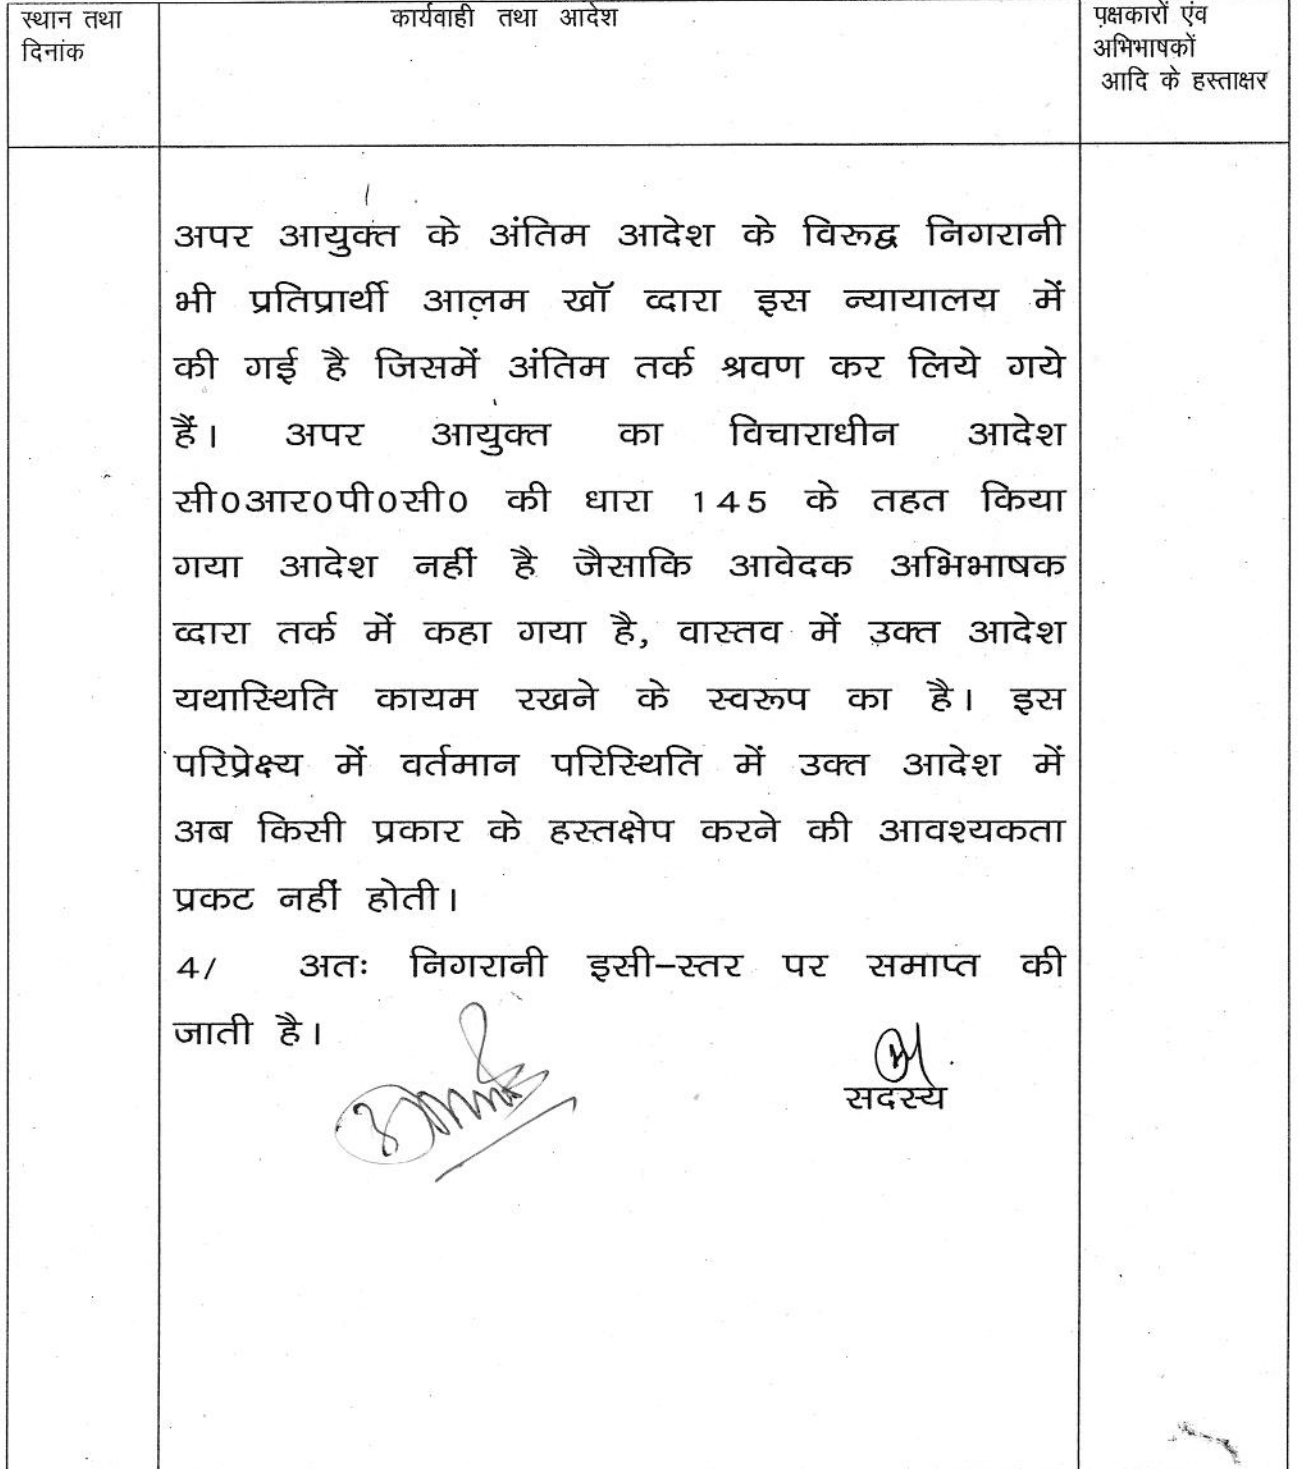 स्थान तथा
दिनांक
कार्यवाही तथा आदेश
पक्षकारों एंव
अभिभाषकों
आदि के हस्ताक्षर
अपर आयुक्त के अंतिम आदेश के विरूद्व निगरानी
भी प्रतिप्रार्थी आलम खॉ व्दारा इस न्यायालय में
की गई है जिसमें अंतिम तर्क श्रवण कर लिये गये
हैं। अपर आयुक्त का विचाराधीन आदेश
सी0आर0पी0सी0 की धारा 145 के तहत किया
गया आदेश नहीं है जैसाकि आवेदक अभिभाषक
व्दारा तर्क में कहा गया है, वास्तव में उक्त आदेश
यथास्थिति कायम रखने के स्वरूप का है। इस
परिप्रेक्ष्य में वर्तमान परिस्थिति में उक्त आदेश में
अब किसी प्रकार के हस्तक्षेप करने की आवश्यकता
प्रकट नहीं होती।
4/ अतः निगरानी इसी-स्तर पर समाप्त की
जाती है।
सदस्य